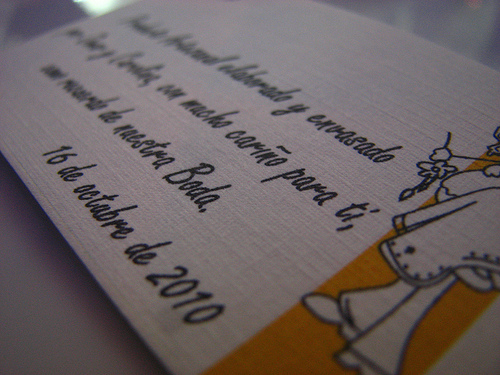 Producto Artesanal elaborado y envasado
por Omar y Coralia, con mucho cariño para ti,
como recuerdo de nuestra Boda.
16 de octubre de 2010